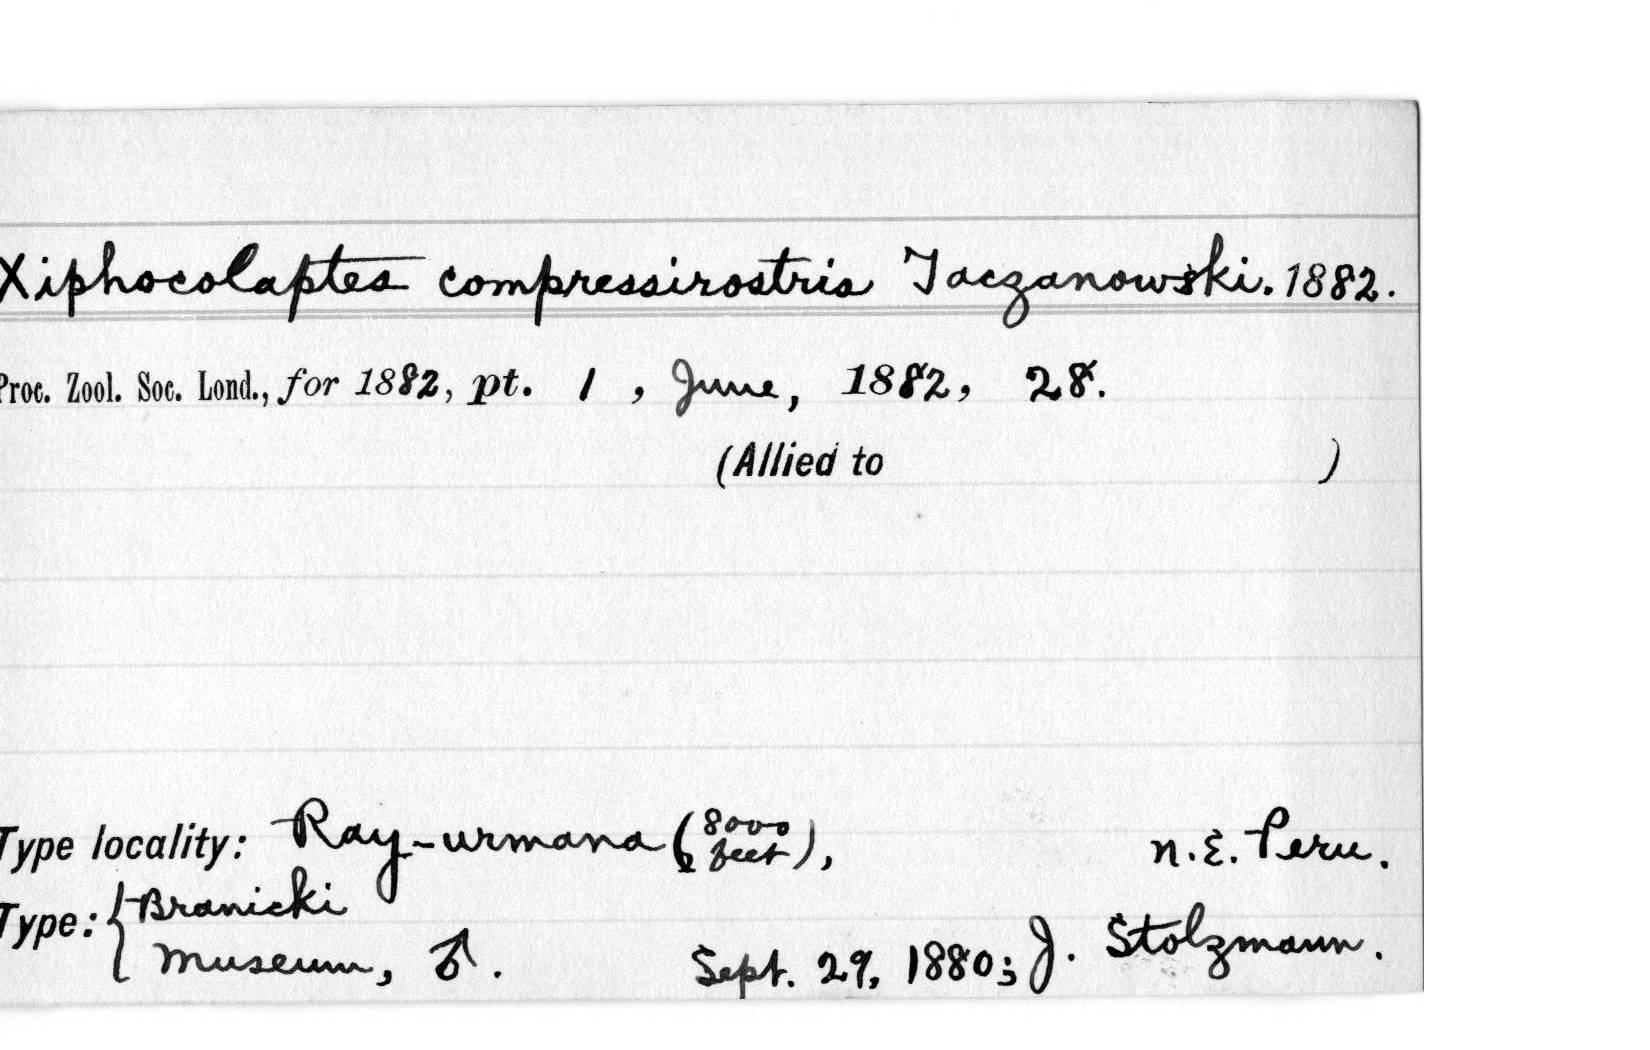 Xiphocolaptes compressirostris Taczanowski. 1882.
Proc. Zool. Soc. Lond., for 1882, pt. 1, June, 1882, 28.
(Allied to )
Type locality: Ray-urmana (8000 feet), n.E. Peru.
Type: { Branicki
Museum, ♂. Sept. 29, 1880; J. Stolzmann.